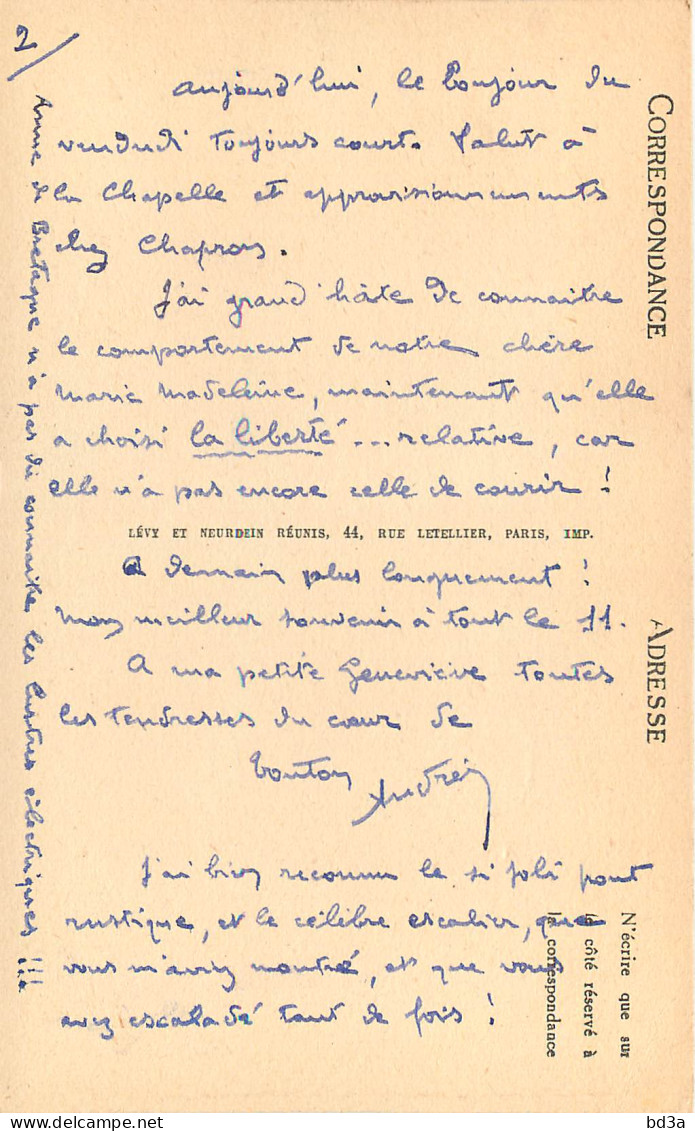 2/
Aujourd'hui, le bonjour du
vendredi toujours court. Salut à
la Chapelle et approvisionnements
chez Chaprons.
J'ai grand hâte de connaitre
le comportement de notre chère
Marie Madeleine, maintenant qu'elle
a choisi la liberté ... relative, car
elle n'a pas encore celle de courir !
LÉVY ET NEURDEIN RÉUNIS, 44, RUE LETELLIER, PARIS, IMP.
A demain plus longuement !
Mon meilleur souvenir à tout le 11.
A ma petite Geneviève toutes
les tendresses du cœur de
Tonton André
J'ai bien reconnu le si joli pont
rustique, et le célèbre escalier, que
vous m'aviez montré, et que vous
avez escaladé tant de fois !
Anne de Bretagne n'a pas dû connaitre les lustres électriques !!!
CORRESPONDANCE
ADRESSE
N'écrire que sur
le côté réservé à
la correspondance
bd3a